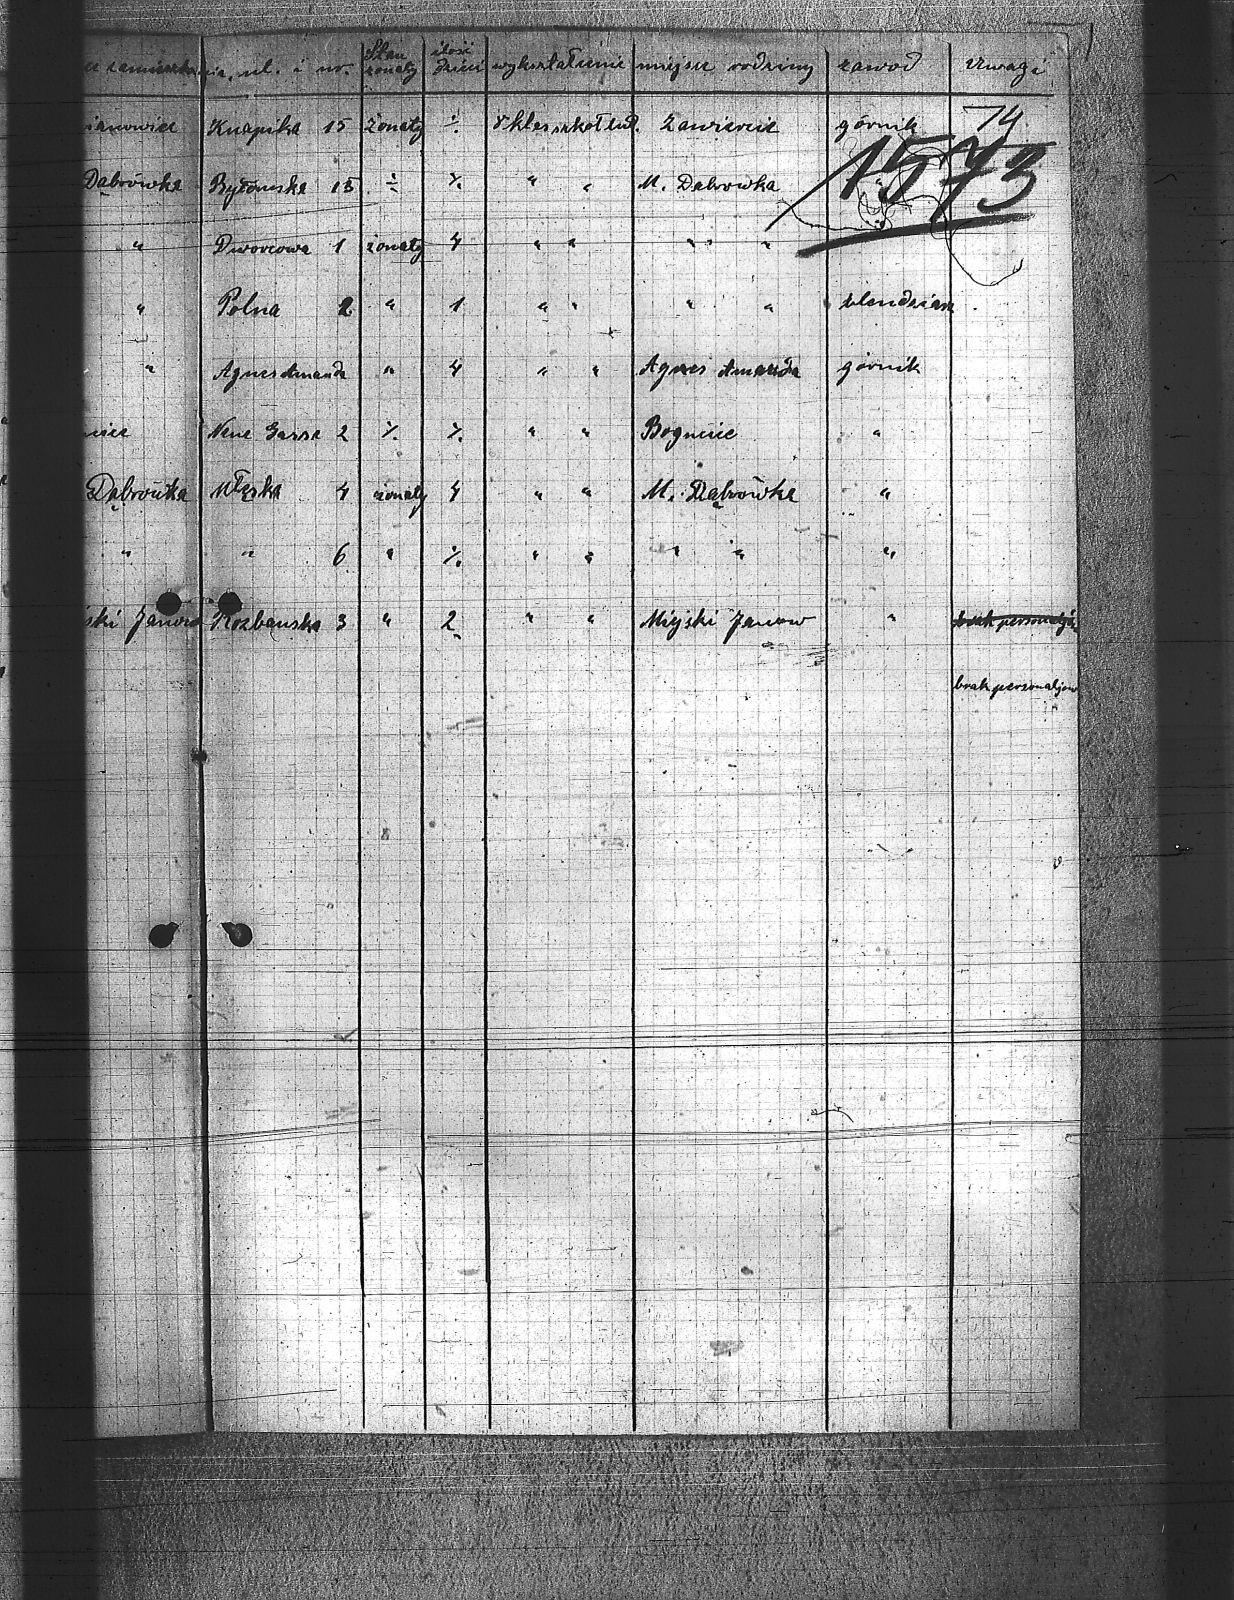 zamieszkania, ul. i nr. Stan żonaty ilość dzieci wykształcenie miejsce rodziny zawód Uwagi
ianowice Knapika 15 żonaty ·/. 7 klas szkoł lud. Zawiercie górnik 74
1573
Dąbrówka Bytomska 15 ÷ ·/. " " M. Dąbrówka "
" Dworcowa 1 żonaty 4 " " " "
" Polna 2 " 1 " " " "
" Agnes Amanda " 4 " " Agnes Amanda górnik
Neue Gasse 2 ·/. ·/. " " Bogucice "
Dąbrówka 4 żonaty 4 " " M. Dąbrówka "
" " 6 " ·/. " " " " "
ski Janow Rozbarska 3 " 2 " " Miejski Janow " brak personaljów
brak personaljów